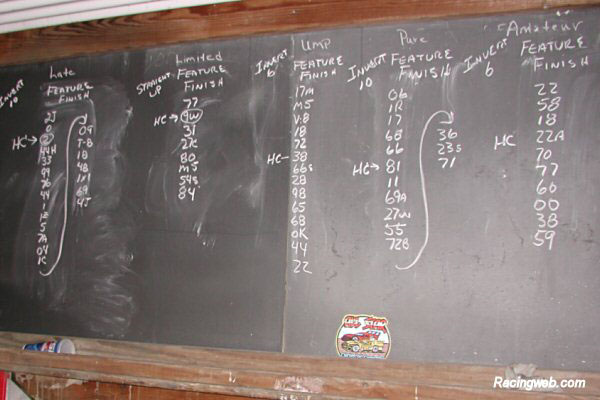 Late
INVERT 10
FEATURE
FINISH
2J
0
HC→ 2
44H
33
99
76
44
1
1E
5
7A
04
1C
09
7-B
18
4B
1M
69
4J
Limited
STRAIGHT UP
FEATURE
FINISH
77
HC→ 9W
31
27C
80
MJ
54S
84
UMP
INVERT 6
FEATURE
FINISH
17M
M5
V-8
18
72
HC– 38
66s
28
98
65
68
0K
44
22
Pure
INVERT 10
FEATURE
FINISH
06
1R
17
68
66
HC→ 81
11
69A
27W
55
72B
36
23s
71
Amateur
INVERT 6
FEATURE
FINISH
22
58
18
HC 22A
70
77
60
00
38
59
Racingweb.com